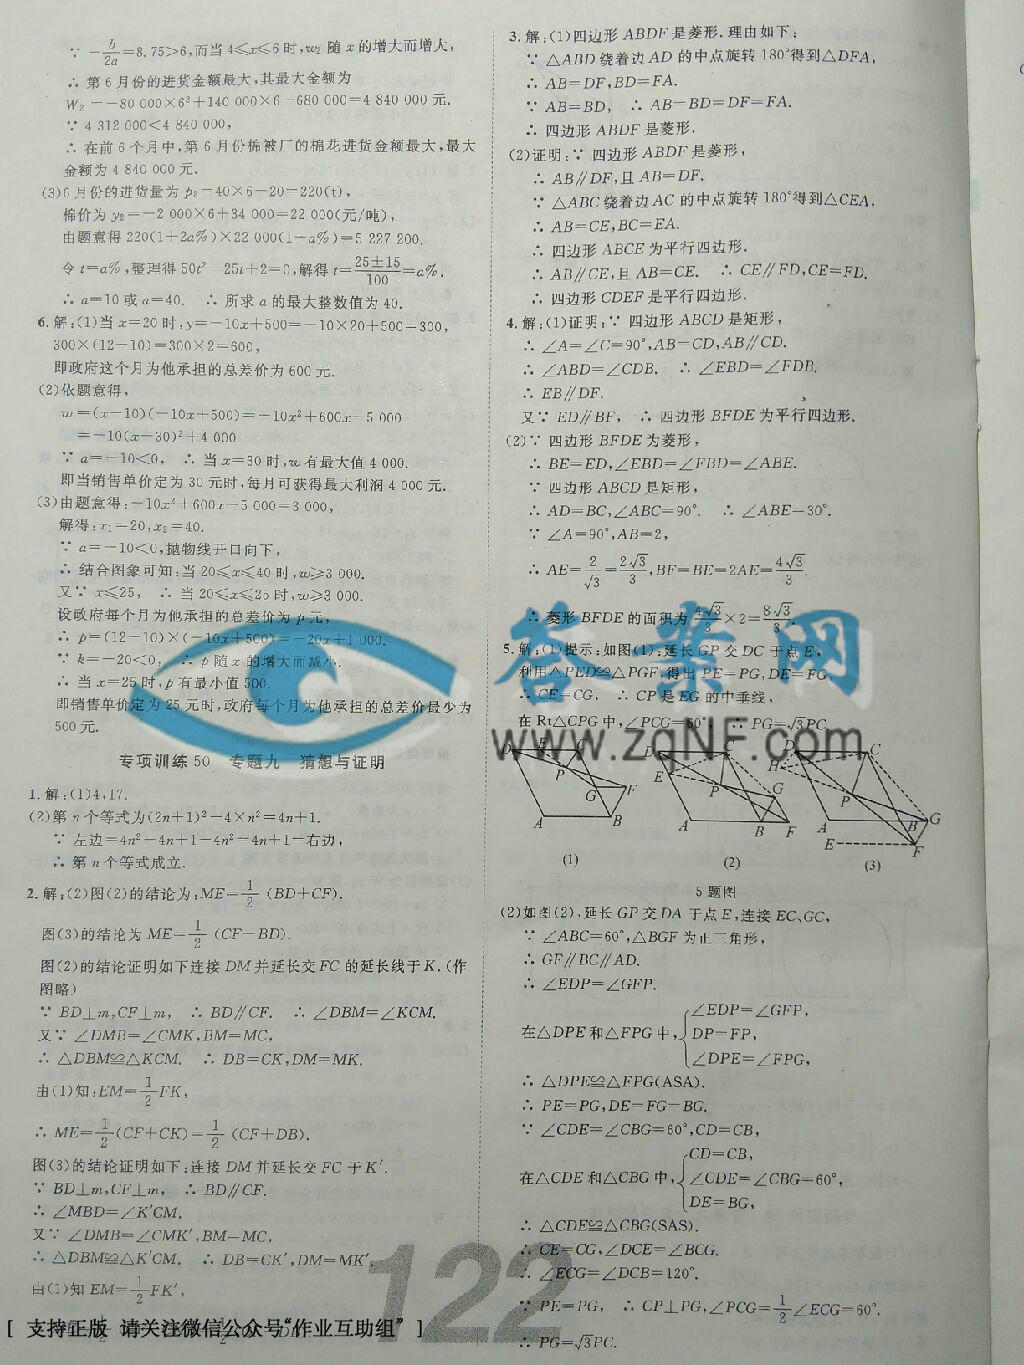 ∵ -b/2a=8.75>6,而当4≤x≤6时,w₂随x的增大而增大,
∴ 第6月份的进货金额最大,其最大金额为
W₂=-80 000×6²+140 000×6-680 000=4 840 000元.
∵ 4 312 000<4 840 000,
∴ 在前6个月中,第6月份棉被厂的棉花进货金额最大,最大
金额为4 840 000元.
(3)6月份的进货量为p₂=40×6-20=220(t),
棉价为y₂=-2 000×6+34 000=22 000(元/吨),
由题意得220(1+2a%)×22 000(1-a%)=5 227 200.
令t=a%,整理得50t²-25t+2=0,解得t=25±15/100=a%.
∴ a=10或a=40. ∴ 所求a的最大整数值为40.
6.解:(1)当x=20时,y=-10x+500=-10×20+500=300,
300×(12-10)=300×2=600,
即政府这个月为他承担的总差价为600元.
(2)依题意得,
w=(x-10)(-10x+500)=-10x²+600x-5 000
=-10(x-30)²+4 000
∵ a=-10<0, ∴ 当x=30时,w有最大值4 000.
即当销售单价定为30元时,每月可获得最大利润4 000元.
(3)由题意得:-10x²+600x-5 000=3 000,
解得:x₁=20,x₂=40.
∵ a=-10<0,抛物线开口向下,
∴ 结合图象可知:当20≤x≤40时,w≥3 000.
又∵ x≤25, ∴ 当20≤x≤25时,w≥3 000.
设政府每个月为他承担的总差价为p元,
∴ p=(12-10)×(-10x+500)=-20x+1 000.
∵ k=-20<0, ∴ p随x的增大而减小.
∴ 当x=25时,p有最小值500.
即销售单价定为25元时,政府每个月为他承担的总差价最少为
500元.
专项训练50 专题九 猜想与证明
1.解:(1)4,17.
(2)第n个等式为(2n+1)²-4×n²=4n+1.
∵ 左边=4n²+4n+1-4n²=4n+1=右边,
∴ 第n个等式成立.
2.解:(2)图(2)的结论为:ME=1/2(BD+CF).
图(3)的结论为ME=1/2(CF-BD).
图(2)的结论证明如下连接DM并延长交FC的延长线于K.(作
图略)
∵ BD⊥m,CF⊥m, ∴ BD∥CF. ∴ ∠DBM=∠KCM.
又∵ ∠DMB=∠CMK,BM=MC,
∴ △DBM≌△KCM. ∴ DB=CK,DM=MK.
由(1)知:EM=1/2FK,
∴ ME=1/2(CF+CK)=1/2(CF+DB).
图(3)的结论证明如下:连接DM并延长交FC于K′.
∵ BD⊥m,CF⊥m, ∴ BD∥CF.
∴ ∠MBD=∠K′CM.
又∵ ∠DMB=∠CMK′,BM=MC,
∴ △DBM≌△K′CM. ∴ DB=CK′,DM=MK′.
由(1)知EM=1/2FK′,
[ 支持正版 请关注微信公众号“作业互助组” ]
3.解:(1)四边形ABDF是菱形.理由如下:
∵ △ABD绕着边AD的中点旋转180°得到△DFA,
∴ AB=DF,BD=FA.
∵ AB=BD, ∴ AB=BD=DF=FA.
∴ 四边形ABDF是菱形.
(2)证明:∵ 四边形ABDF是菱形,
∴ AB∥DF,且AB=DF.
∵ △ABC绕着边AC的中点旋转180°得到△CEA,
∴ AB=CE,BC=EA.
∴ 四边形ABCE为平行四边形.
∴ AB∥CE,且AB=CE. ∴ CE∥FD,CE=FD.
∴ 四边形CDEF是平行四边形.
4.解:(1)证明:∵ 四边形ABCD是矩形,
∴ ∠A=∠C=90°,AB=CD,AB∥CD.
∴ ∠ABD=∠CDB. ∴ ∠EBD=∠FDB.
∴ EB∥DF.
又∵ ED∥BF, ∴ 四边形BFDE为平行四边形.
(2)∵ 四边形BFDE为菱形,
∴ BE=ED,∠EBD=∠FBD=∠ABE.
∵ 四边形ABCD是矩形,
∴ AD=BC,∠ABC=90°. ∴ ∠ABE=30°.
∵ ∠A=90°,AB=2,
∴ AE=2/√3=2√3/3,BF=BE=2AE=4√3/3.
∴ 菱形BFDE的面积为4√3/3×2=8√3/3.
答案网
5.解:(1)提示:如图(1):延长GP交DC于点E,
利用△PED≌△PGF,得出PE=PG,DE=FG,
∴ CE=CG, ∴ CP是EG的中垂线,
在Rt△CPG中,∠PCG=60°, ∴ PG=√3PC.
www.zqNF.com
D E C P G F A B
(1)
D C E P G A B F
(2)
D C H P A B G E F
(3)
5题图
(2)如图(2),延长GP交DA于点E,连接EC,GC,
∵ ∠ABC=60°,△BGF为正三角形,
∴ GF∥BC∥AD.
∴ ∠EDP=∠GFP.
在△DPE和△FPG中,{∠EDP=∠GFP,
DP=FP,
∠DPE=∠FPG,
∴ △DPE≌△FPG(ASA).
∴ PE=PG,DE=FG=BG.
∵ ∠CDE=∠CBG=60°,CD=CB,
在△CDE和△CBG中,{CD=CB,
∠CDE=∠CBG=60°,
DE=BG,
∴ △CDE≌△CBG(SAS).
∴ CE=CG,∠DCE=∠BCG.
∴ ∠ECG=∠DCB=120°.
∵ PE=PG, ∴ CP⊥PG,∠PCG=1/2∠ECG=60°.
∴ PG=√3PC.
122